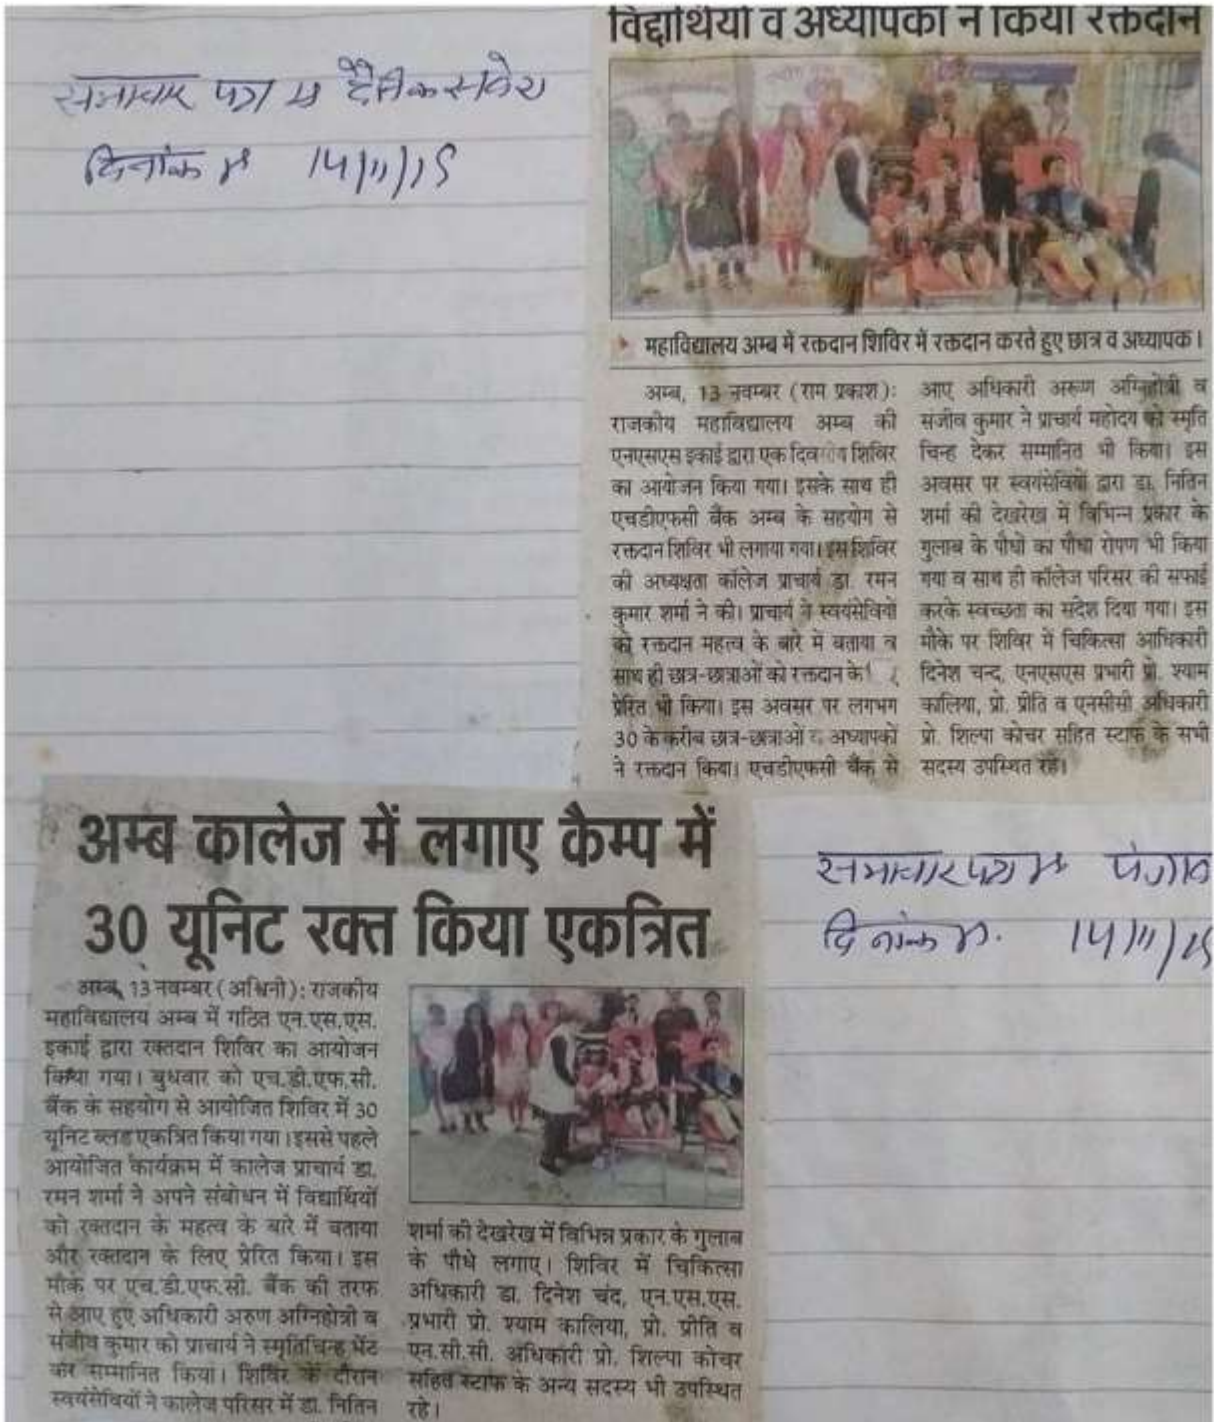 समाचार पत्र में दैनिक सवेरा
दिनांक में 14/11/15
विद्यार्थियों व अध्यापकों ने किया रक्तदान
महाविद्यालय अम्ब में रक्तदान शिविर में रक्तदान करते हुए छात्र व अध्यापक।
अम्ब, 13 नवम्बर (राम प्रकाश):
राजकीय महाविद्यालय अम्ब की
एनएसएस इकाई द्वारा एक दिवसीय शिविर
का आयोजन किया गया। इसके साथ ही
एचडीएफसी बैंक अम्ब के सहयोग से
रक्तदान शिविर भी लगाया गया। इस शिविर
की अध्यक्षता कॉलेज प्राचार्य डा. रमन
कुमार शर्मा ने की। प्राचार्य ने स्वयंसेवियों
को रक्तदान महत्व के बारे में बताया व
साथ ही छात्र-छात्राओं को रक्तदान के
प्रेरित भी किया। इस अवसर पर लगभग
30 के करीब छात्र-छात्राओं व अध्यापकों
ने रक्तदान किया। एचडीएफसी बैंक से
आए अधिकारी अरूण अग्निहोत्री व
संजीव कुमार ने प्राचार्य महोदय को स्मृति
चिन्ह देकर सम्मानित भी किया। इस
अवसर पर स्वयंसेवियों द्वारा डा. नितिन
शर्मा की देखरेख में विभिन्न प्रकार के
गुलाब के पौधों का पौधा रोपण भी किया
गया व साथ ही कॉलेज परिसर की सफाई
करके स्वच्छता का संदेश दिया गया। इस
मौके पर शिविर में चिकित्सा आधिकारी
दिनेश चन्द, एनएसएस प्रभारी प्रो. श्याम
कालिया, प्रो. प्रीति व एनसीसी अधिकारी
प्रो. शिल्पा कोचर सहित स्टाफ के सभी
सदस्य उपस्थित रहे।
अम्ब कालेज में लगाए कैम्प में
30 यूनिट रक्त किया एकत्रित
अम्ब, 13 नवम्बर (अश्विनी): राजकीय
महाविद्यालय अम्ब में गठित एन.एस.एस.
इकाई द्वारा रक्तदान शिविर का आयोजन
किया गया। बुधवार को एच.डी.एफ.सी.
बैंक के सहयोग से आयोजित शिविर में 30
यूनिट ब्लड एकत्रित किया गया। इससे पहले
आयोजित कार्यक्रम में कालेज प्राचार्य डा.
रमन शर्मा ने अपने संबोधन में विद्यार्थियों
को रक्तदान के महत्व के बारे में बताया
और रक्तदान के लिए प्रेरित किया। इस
मौके पर एच.डी.एफ.सी. बैंक की तरफ
से आए हुए अधिकारी अरुण अग्निहोत्री व
संजीव कुमार को प्राचार्य ने स्मृतिचिन्ह भेंट
कर सम्मानित किया। शिविर के दौरान
स्वयंसेवियों ने कालेज परिसर में डा. नितिन
शर्मा की देखरेख में विभिन्न प्रकार के गुलाब
के पौधे लगाए। शिविर में चिकित्सा
अधिकारी डा. दिनेश चंद, एन.एस.एस.
प्रभारी प्रो. श्याम कालिया, प्रो. प्रीति व
एन.सी.सी. अधिकारी प्रो. शिल्पा कोचर
सहित स्टाफ के अन्य सदस्य भी उपस्थित
रहे।
समाचार पत्र में पंजाब
दिनांक में. 14/11/15